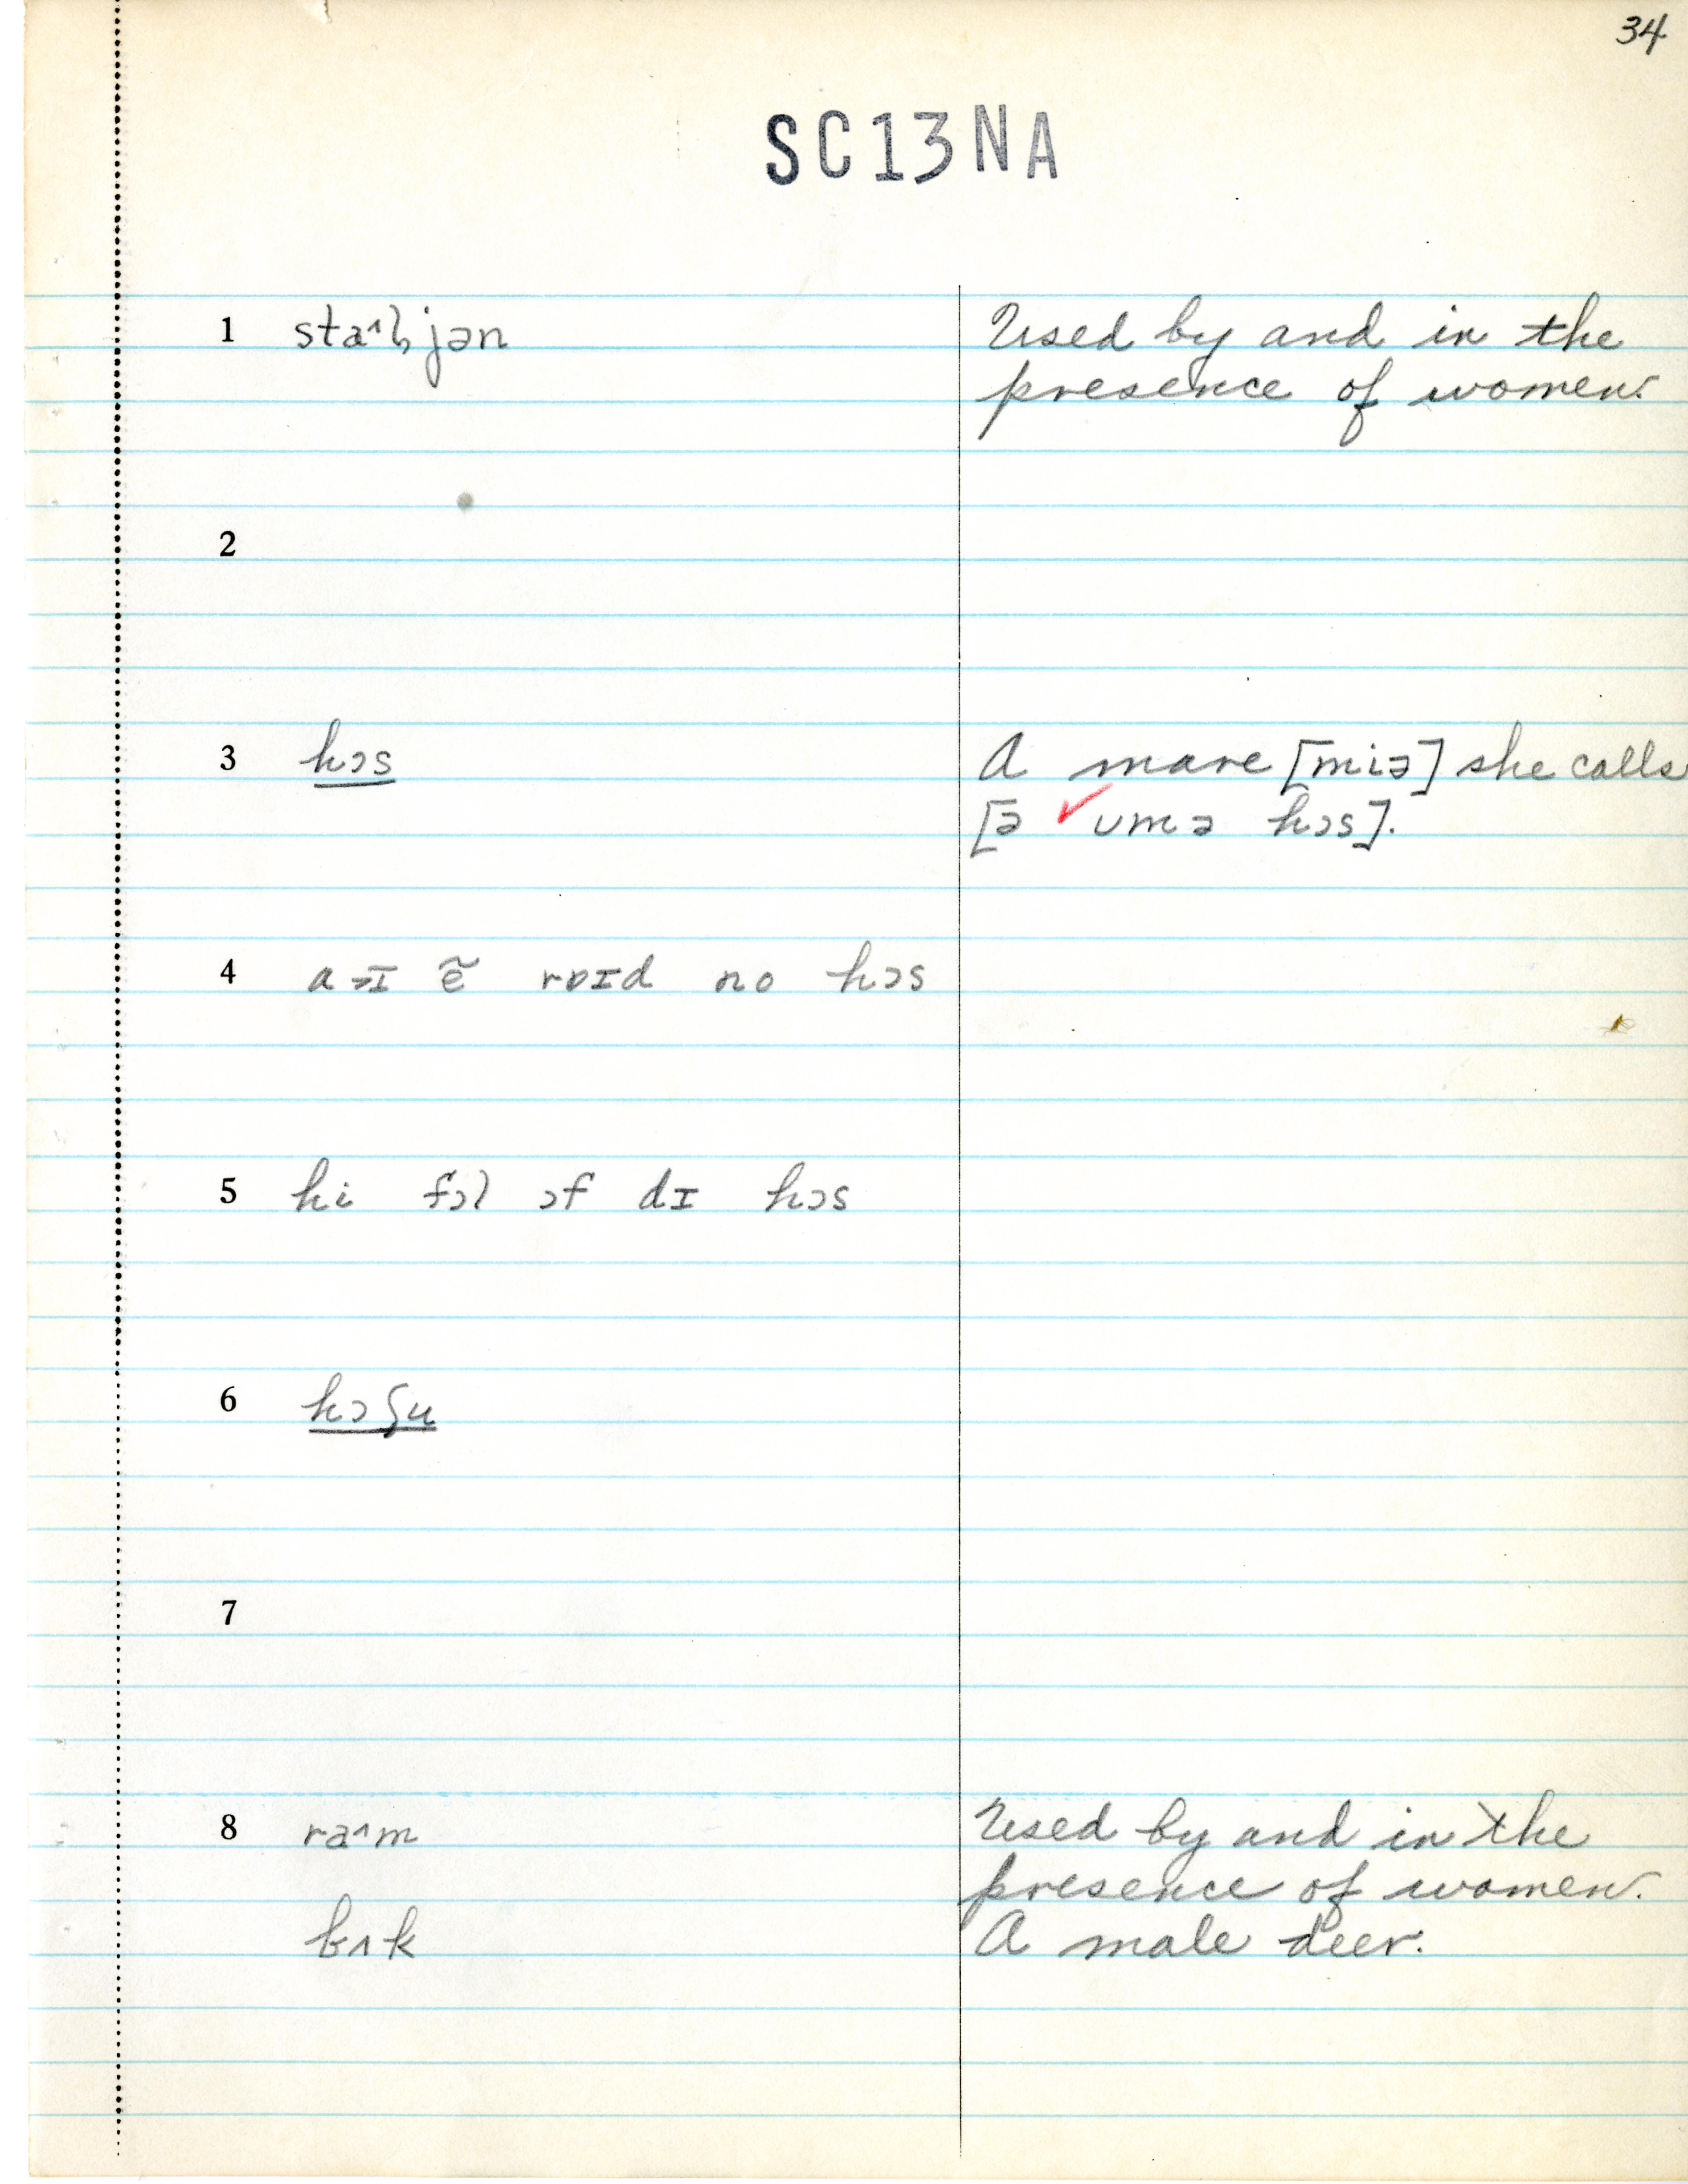 34
SC13NA
1 sta^l̥jən Used by and in the
presence of women.
2
3 hɔs A mare [miə] she calls
[ə ʊmə hɔs].
4 aɪ ẽ rɒɪd no hɔs
5 hi fɔl ɔf dɪ hɔs
6 hɔʃu
7
8 ra^m Used by and in the
presence of women.
bʌk A male deer.